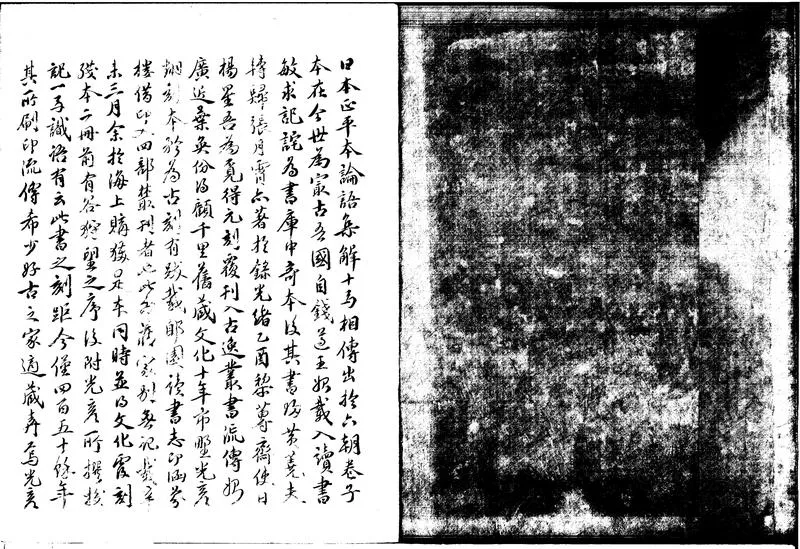 日本正平本論語集解十卷相傳出於六朝卷子
本在今世為最古吾國自錢遵王始載入讀書
敏求記詫為書庫中奇本後其書歸黃蕘夫
轉歸張月霄亦著於錄光緒乙酉黎蒓齋使日
楊星吾為覓得元刻覆刊入古逸叢書流傳始
廣近葉奐份得顧千里舊藏文化十年市野光彥
翻刻本於為古刻有跋載郋園讀書志印涵芬
樓借印入四部叢刊者也此書舊家別無記載辛
未三月余於海上購獲是本同時並得文化覆刻
殘本二冊前有谷望之序後附光彥所撰校
記一卷識語有云此書之刻距今僅四百五十餘年
其所刷印流傳希少好古之家適藏弆焉光彥